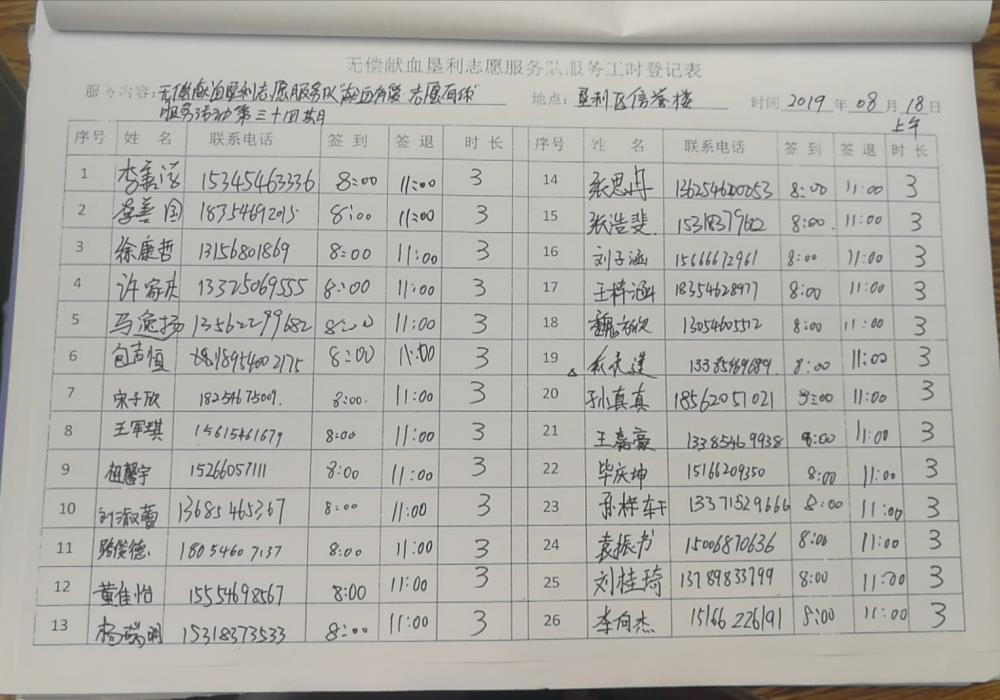 无偿献血垦利志愿服务队服务工时登记表
服务内容:无偿献血垦利志愿服务队 献血有爱 志愿有你 地点:垦利区信誉楼 时间 2019 年 08 月 18 日
服务活动第三十四期 上午
序号 姓名 联系电话 签到 签退 时长 序号 姓名 联系电话 签到 签退 时长
1 李善 15345463336 8:00 11:00 3 14 张思冉 13625460053 8:00 11:00 3
2 李善国 8:00 11:00 3 15 张浩斐 15318379602 8:00 11:00 3
3 徐康哲 13156801869 8:00 11:00 3 16 刘子涵 15666672961 8:00 11:00 3
4 许家 13325069555 8:00 11:00 3 17 王梓涵 18354628977 8:00 11:00 3
5 马逸扬 13562299682 8:00 11:00 3 18 魏 13054605512 8:00 11:00 3
6 包志恒 18954002175 8:00 11:00 3 19 8:00 11:00 3
7 宋子欣 18254675009. 8:00. 11:00 3 20 孙真真 18562051021 8:00 11:00 3
8 王军琪 15615461679 8:00 11:00 3 21 王嘉豪 13385469938 8:00 11:00 3
9 祖馨宇 15266057111 8:00 11:00 3 22 毕庆坤 15166209350 8:00 11:00 3
10 刘淑蕾 13685465367 8:00 11:00 3 23 孙梓轩 13371529666 8:00 11:00 3
11 骆俊德 18054607137 8:00 11:00 3 24 袁振书 15006870636 8:00 11:00 3
12 董佳怡 15554698567 8:00 11:00 3 25 刘桂琦 13789833799 8:00 11:00 3
13 杨瑞明 15318373533 8:00 11:00 3 26 李向杰 15166226191 8:00 11:00 3